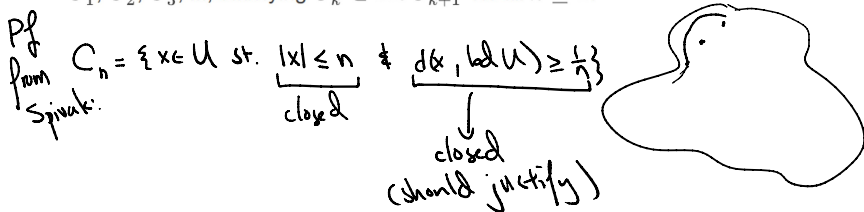 Pf
from
Spivak:
C_n = { x ∈ U st. |x| ≤ n & d(x, bd U) ≥ 1/n }
closed
closed
(should justify)